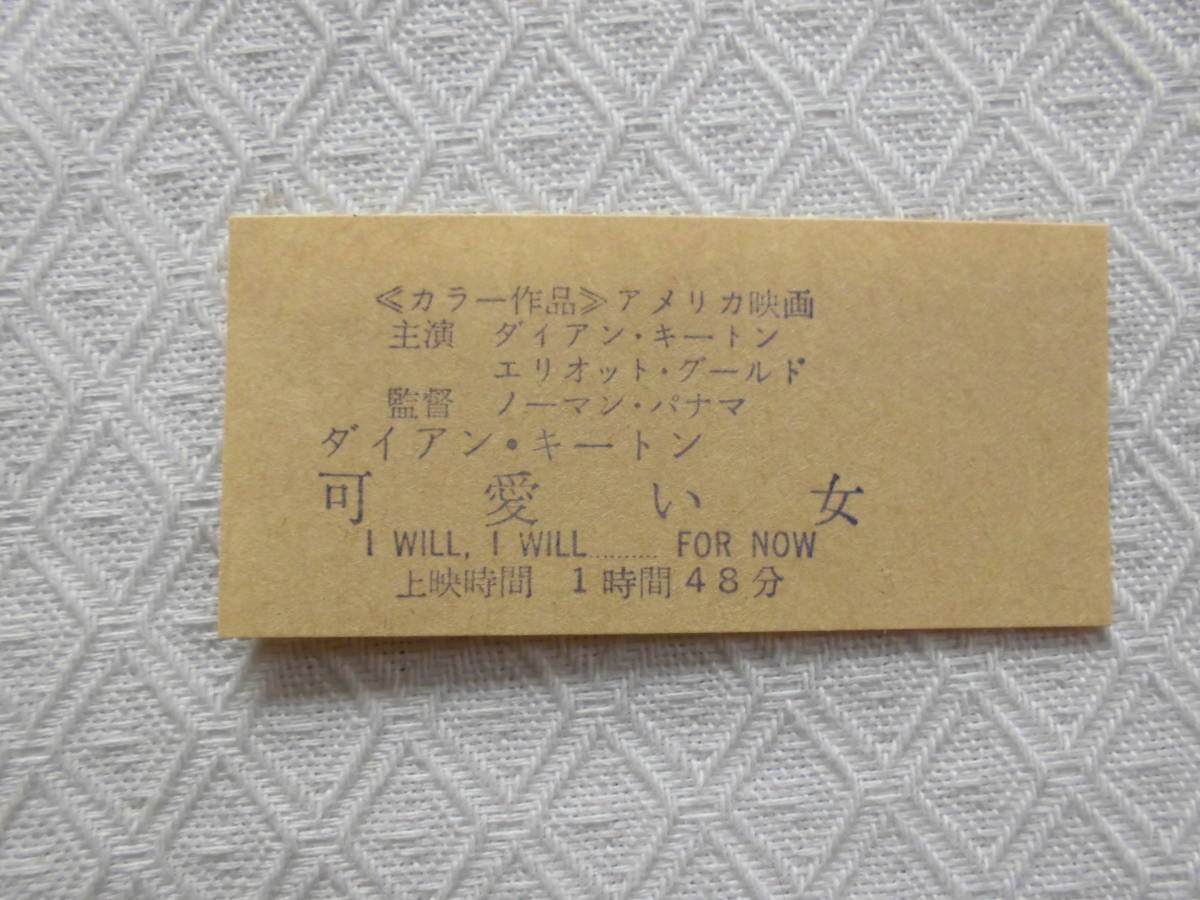 ≪カラー作品≫アメリカ映画
主演 ダイアン・キートン
エリオット・グールド
監督 ノーマン・パナマ
ダイアン・キートン
可愛い女
I WILL, I WILL.......... FOR NOW
上映時間 1時間48分